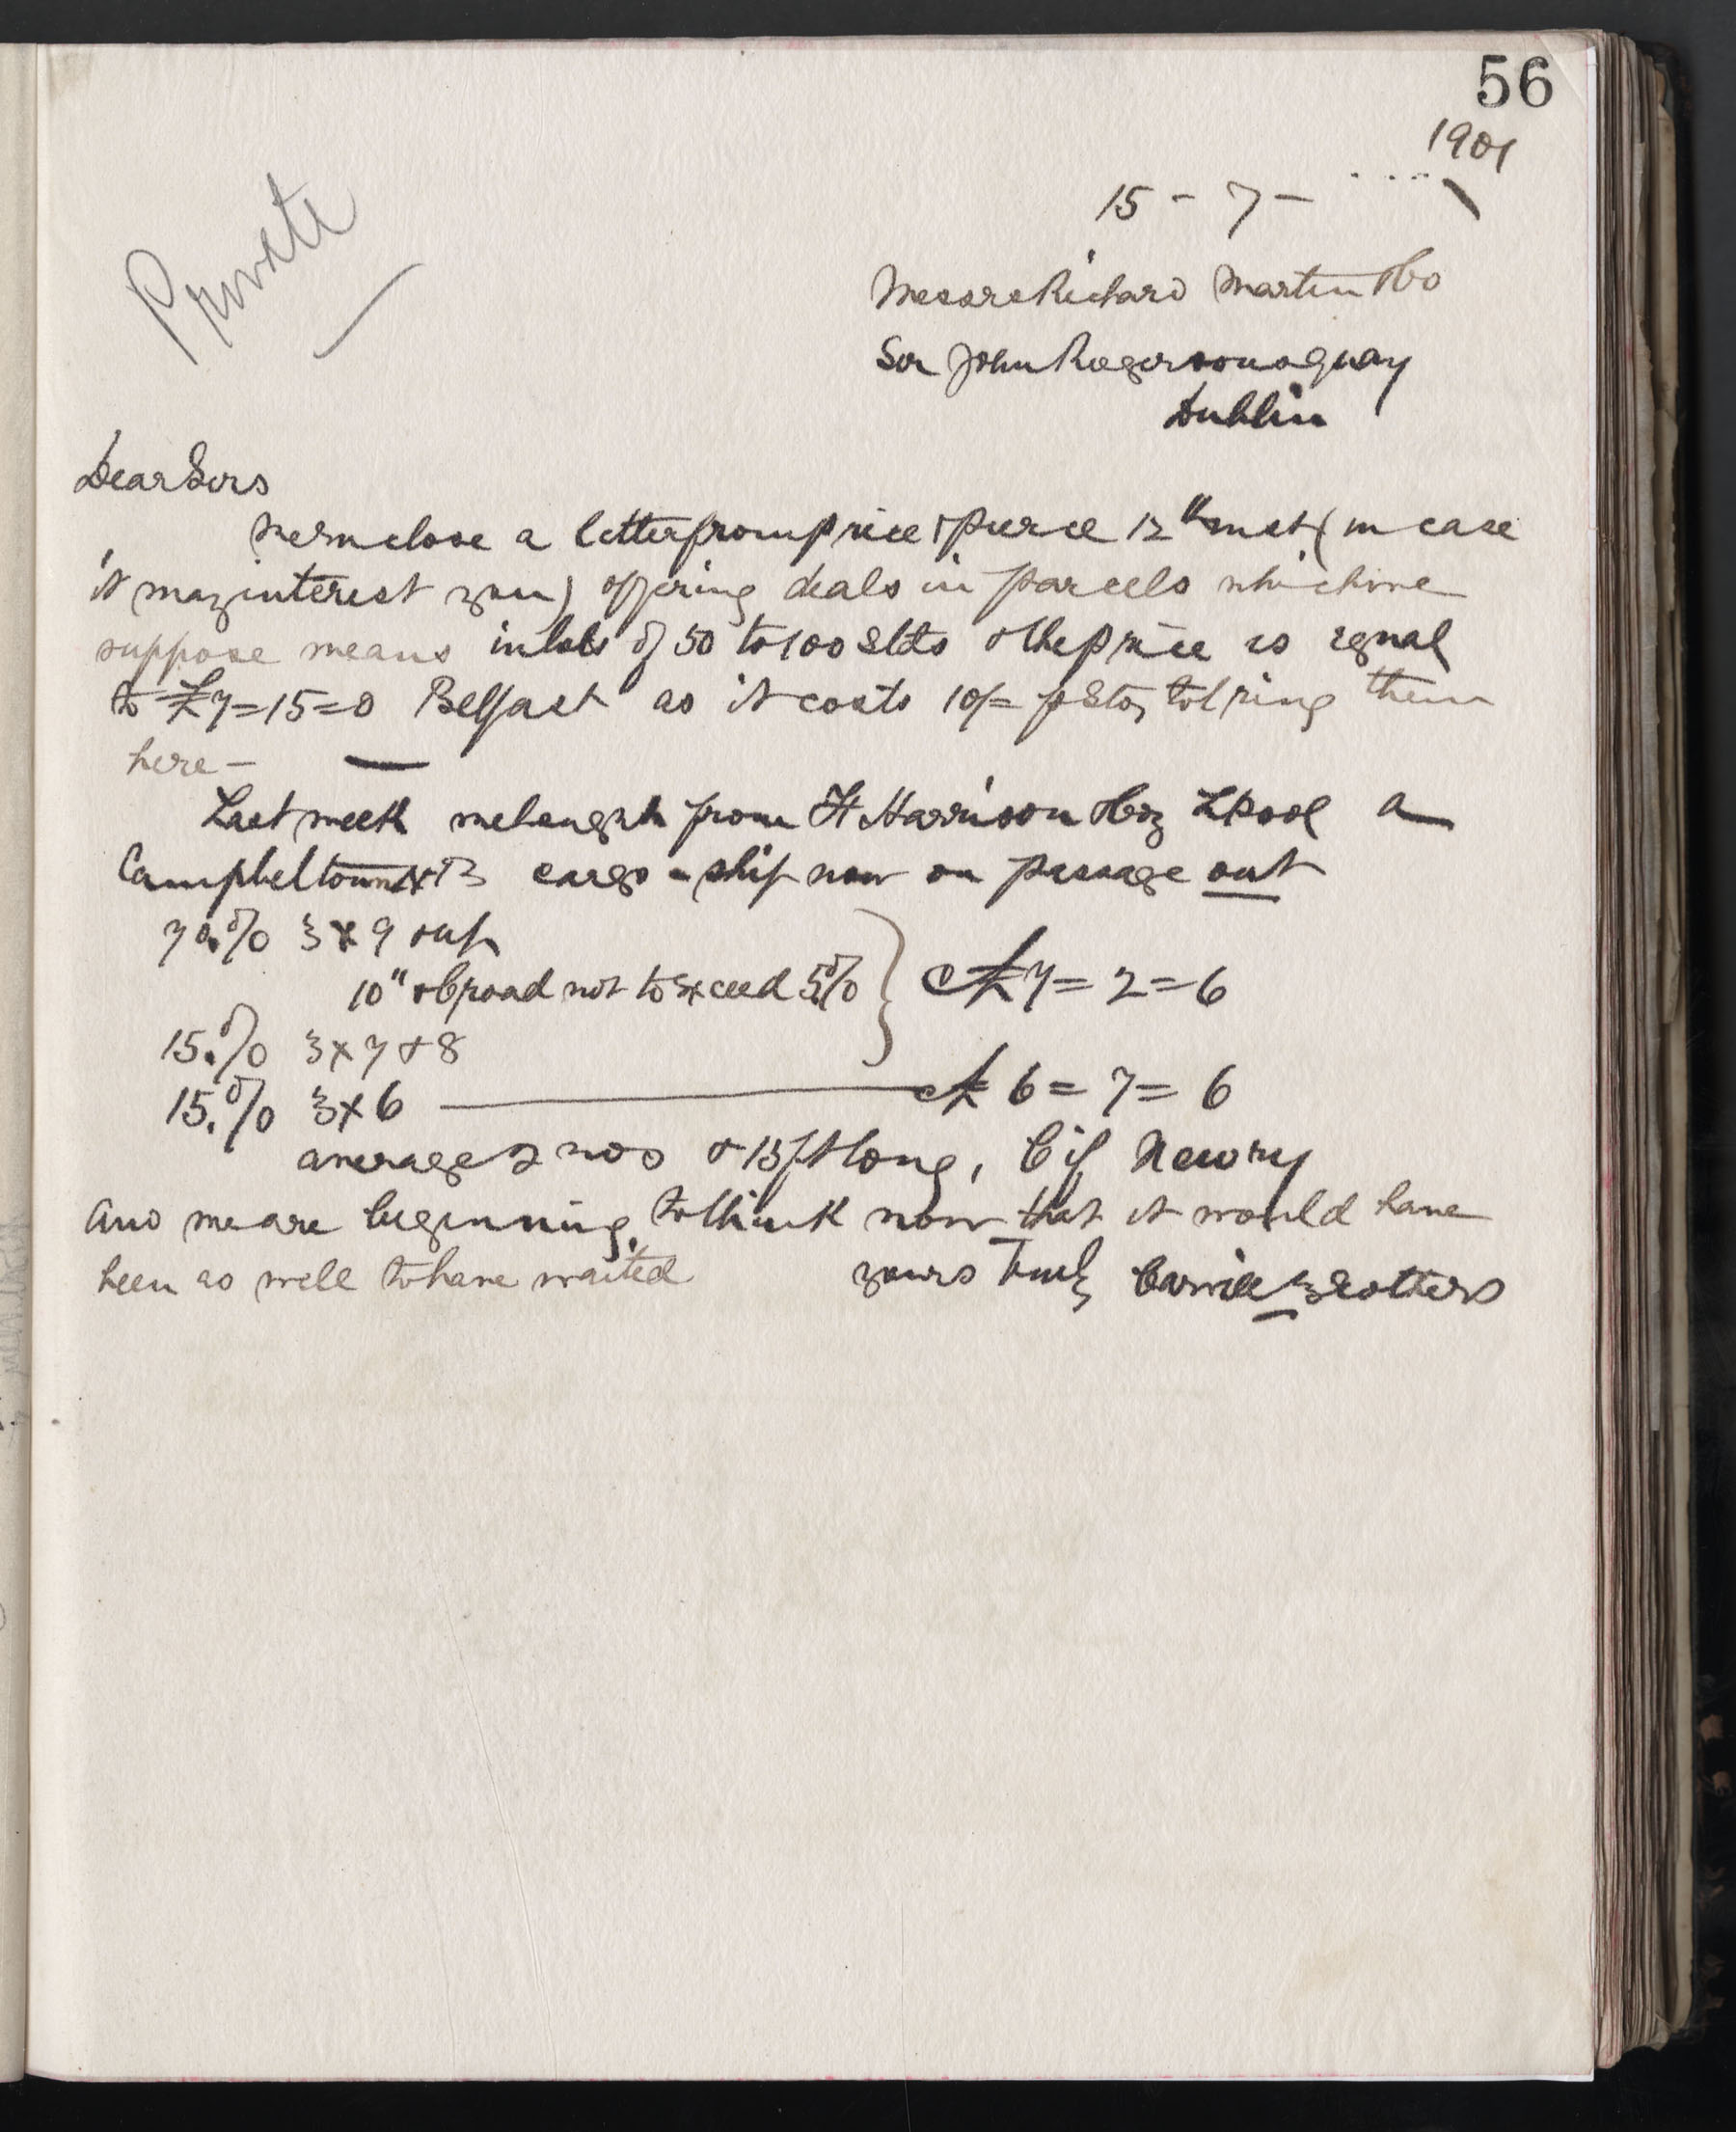 56
1901
15 - 7 -
Private
Messrs Richard Martin & Co
Sir John Rogersons Quay
Dublin
Dear Sirs
We enclose a letter from Price & Pierce 12th inst (in case
it may interest you) offering deals in parcels which we
suppose means in lots of 50 to 100 Stds & the price is equal
to £7=15=0 Belfast as it costs 10/= p Std to bring them
here -
Last week we bought from H Harrison & Coy Lpool a
Campbeltown cargo - ship now on passage out
70.% 3 x 9 & up
10" & broad not to exceed 5%
£7=2=6
15.% 3x7 & 8
15.% 3x6 £6=7=6
average 2 nos & 13 ft long, Cif Newry
and we are beginning to think now that it would have
been as well to have waited yours truly Carvill Brothers